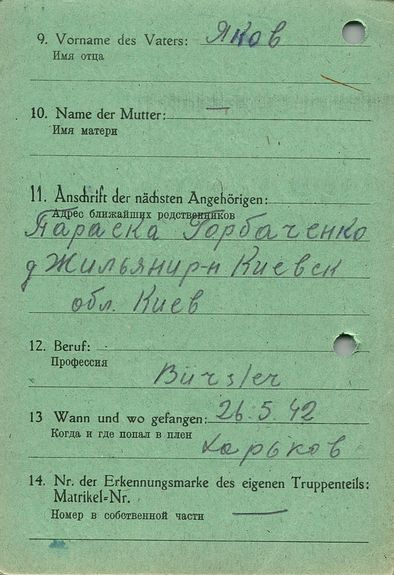 9. Vorname des Vaters: Яков
Имя отца
10. Name der Mutter: —
Имя матери
11. Anschrift der nächsten Angehörigen:
Адрес ближайших родственников
Параска Горбаченко
д Жильянир-н Киевск
обл. Киев
12. Beruf:
Профессия
Bürsler
13 Wann und wo gefangen: 26.5.42
Когда и где попал в плен
Харьков
14. Nr. der Erkennungsmarke des eigenen Truppenteils:
Matrikel-Nr.
Номер в собственной части —